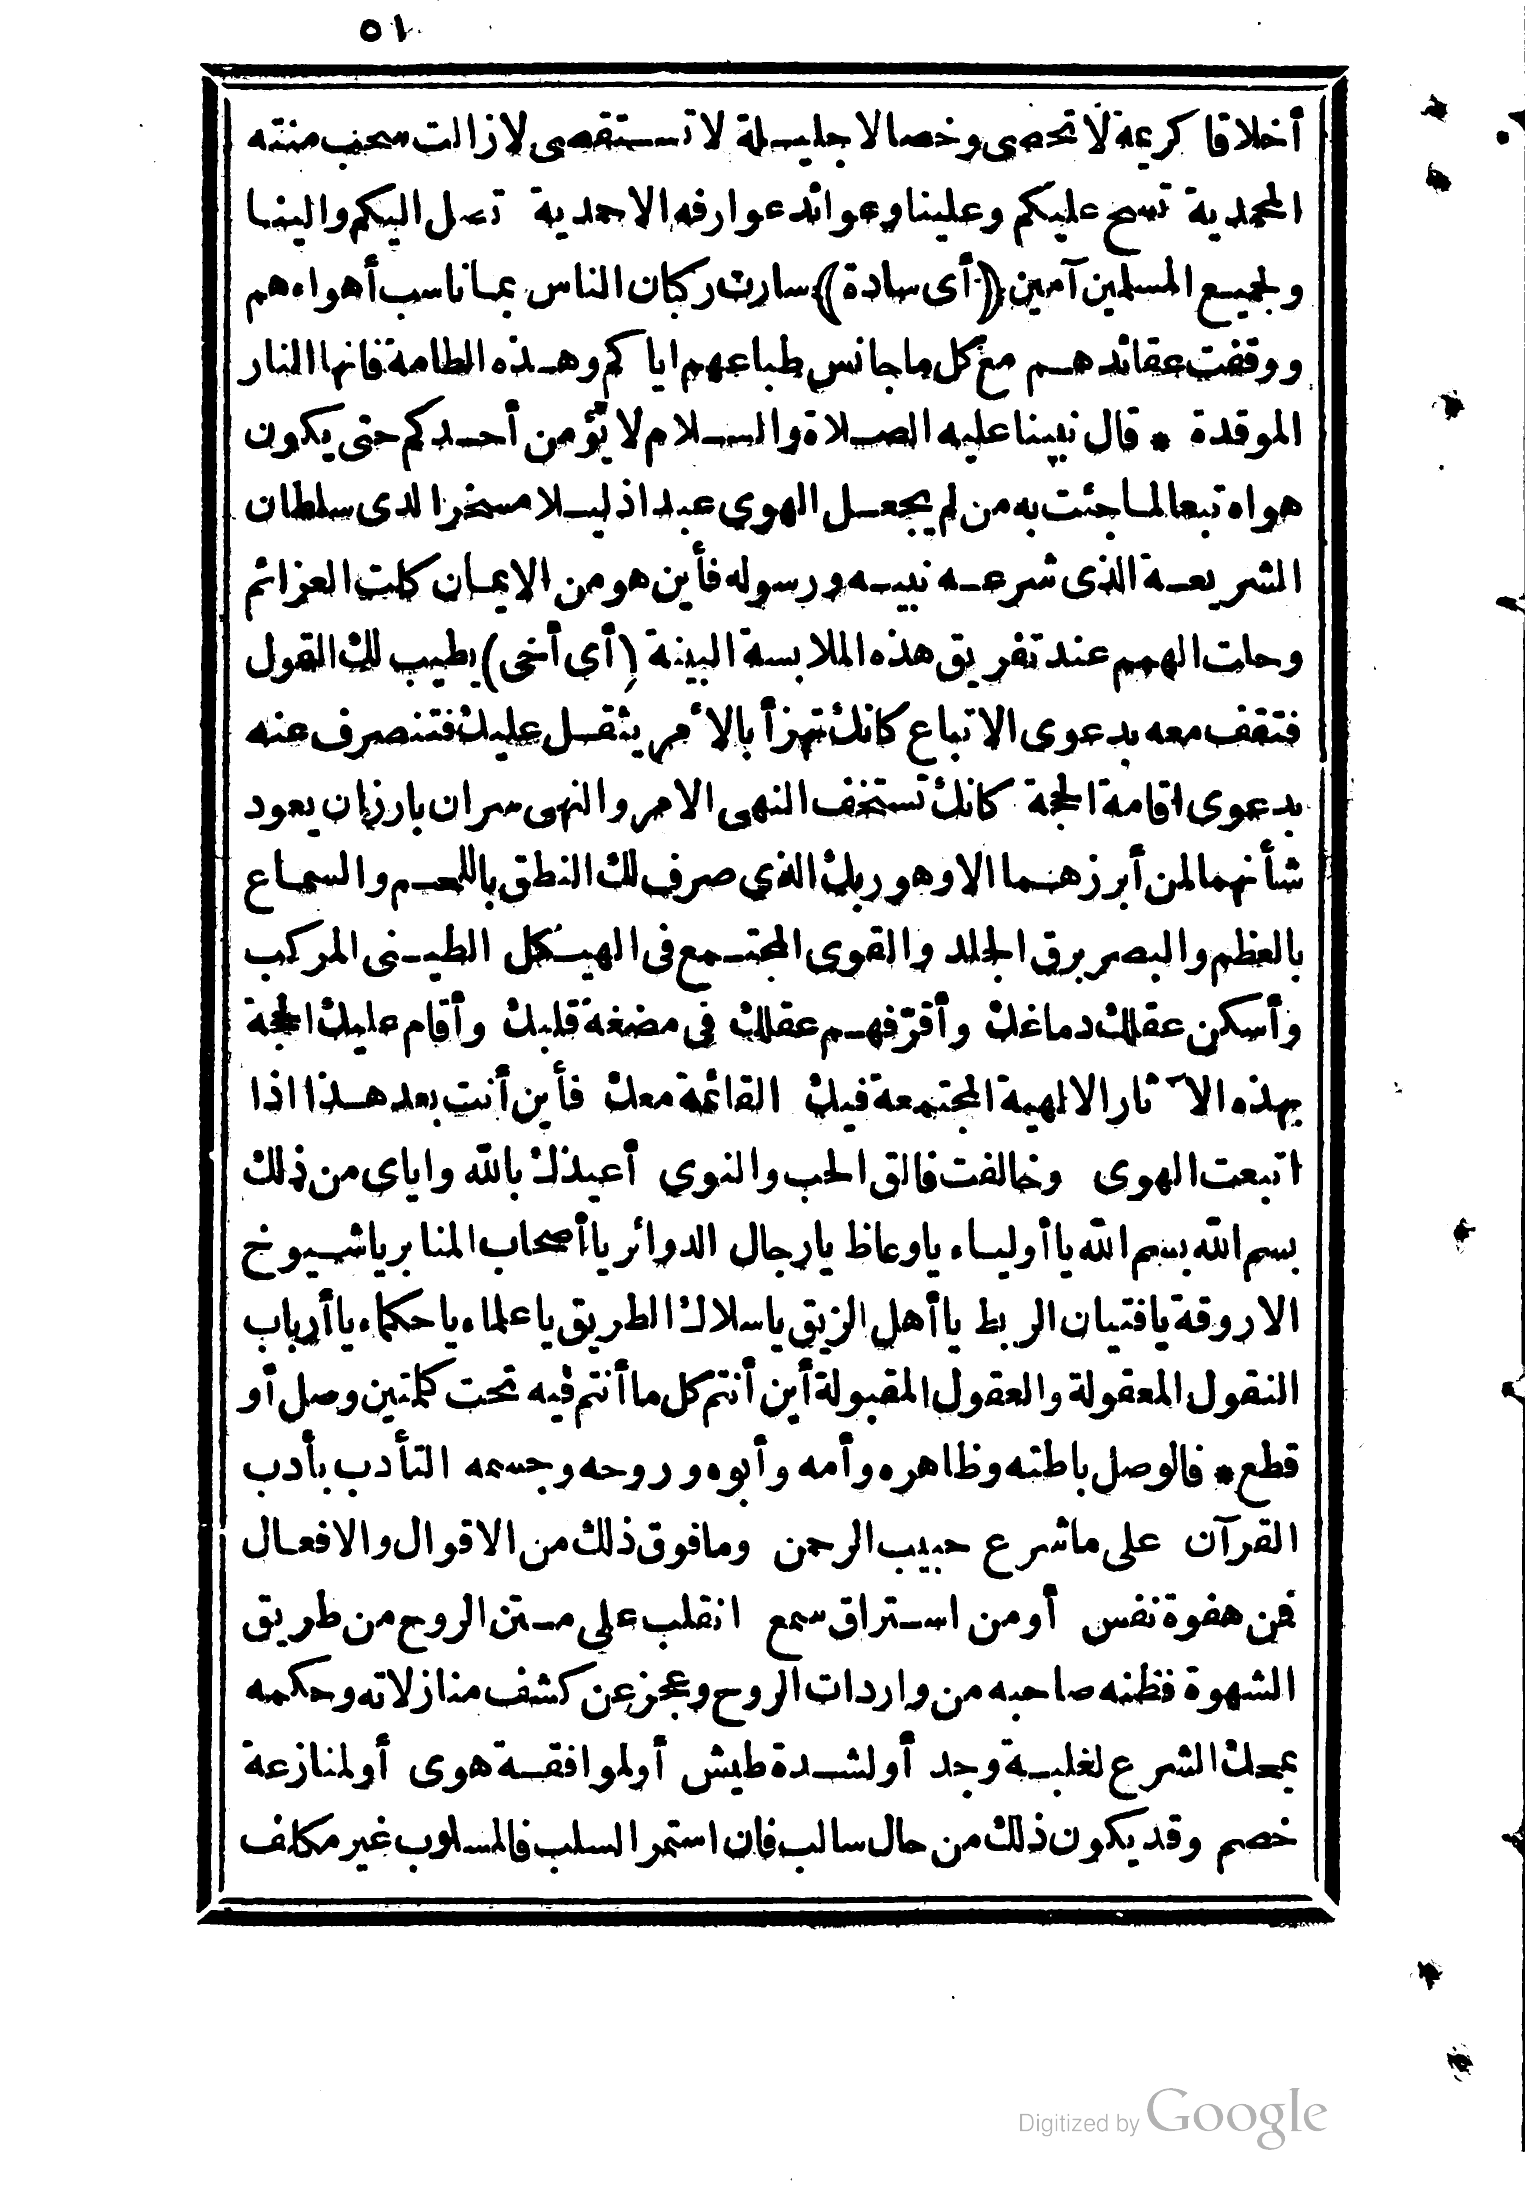 ٥١
أخلاقا كريمة لا تحصى وخصالا جليلة لا تستقصى لازالت سحب منته
المحمدية تسح عليكم وعلينا وعوائد عوارفه الاحمدية تصل اليكم والينا
ولجميع المسلمين آمين (أى سادة) سارت ركبان الناس بما ناسب أهواءهم
ووقفت عقائدهم مع كل ما جانس طباعهم اياكم وهذه الطامة فانها النار
الموقدة * قال نبينا عليه الصلاة والسلام لا يؤمن أحدكم حتى يكون
هواه تبعا لما جئت به من لم يجعل الهوى عبدا ذليلا مسخرا لدى سلطان
الشريعة الذى شرعه نبيه ورسوله فأين هو من الايمان كلت العزائم
وحلت الهمم عند تفريق هذه الملابسة البينة (أى أخى) يطيب لك القول
فتقف معه بدعوى الاتباع كانك تهزأ بالأمر يثقل عليك فتنصرف عنه
بدعوى اقامة الحجة كانك تستخف النهى الامر والنهى سران بارزان يعود
شأنهما لمن أبرزهما الا وهو ربك الذي صرف لك النطق باللحم والسماع
بالعظم والبصر برق الجلد والقوى المجتمع فى الهيكل الطينى المركب
وأسكن عقلك دماغك وأقرّ فهم عقلك فى مضغة قلبك وأقام عليك الحجة
بهذه الآثار الالهية المجتمعة فيك القائمة معك فأين أنت بعد هذا اذا
اتبعت الهوى وخالفت فالق الحب والنوي أعيذك بالله واياى من ذلك
بسم الله بسم الله يا أولياء ياوعاظ يارجال الدوائر يا أصحاب المنابر ياشيوخ
الاروقة يافتيان الربط يا أهل الزيق ياسلاك الطريق ياعلماء ياحكماء يا أرباب
النقول المعقولة والعقول المقبولة أين أنتم كل ما أنتم فيه تحت كلمتين وصل أو
قطع * فالوصل باطنه وظاهره وأمه وأبوه وروحه وجسمه التأدب بأدب
القرآن على ماشرع حبيب الرحمن ومافوق ذلك من الاقوال والافعال
فمن هفوة نفس أو من استراق سمع انقلب على متن الروح من طريق
الشهوة فظنه صاحبه من واردات الروح وعجز عن كشف منازلاته وحكمه
بمحك الشرع لغلبة وجد أو لشدة طيش أو لموافقة هوى أو لمنازعة
خصم وقد يكون ذلك من حال سالب فان استمر السلب فالمسلوب غير مكلف
Digitized by Google